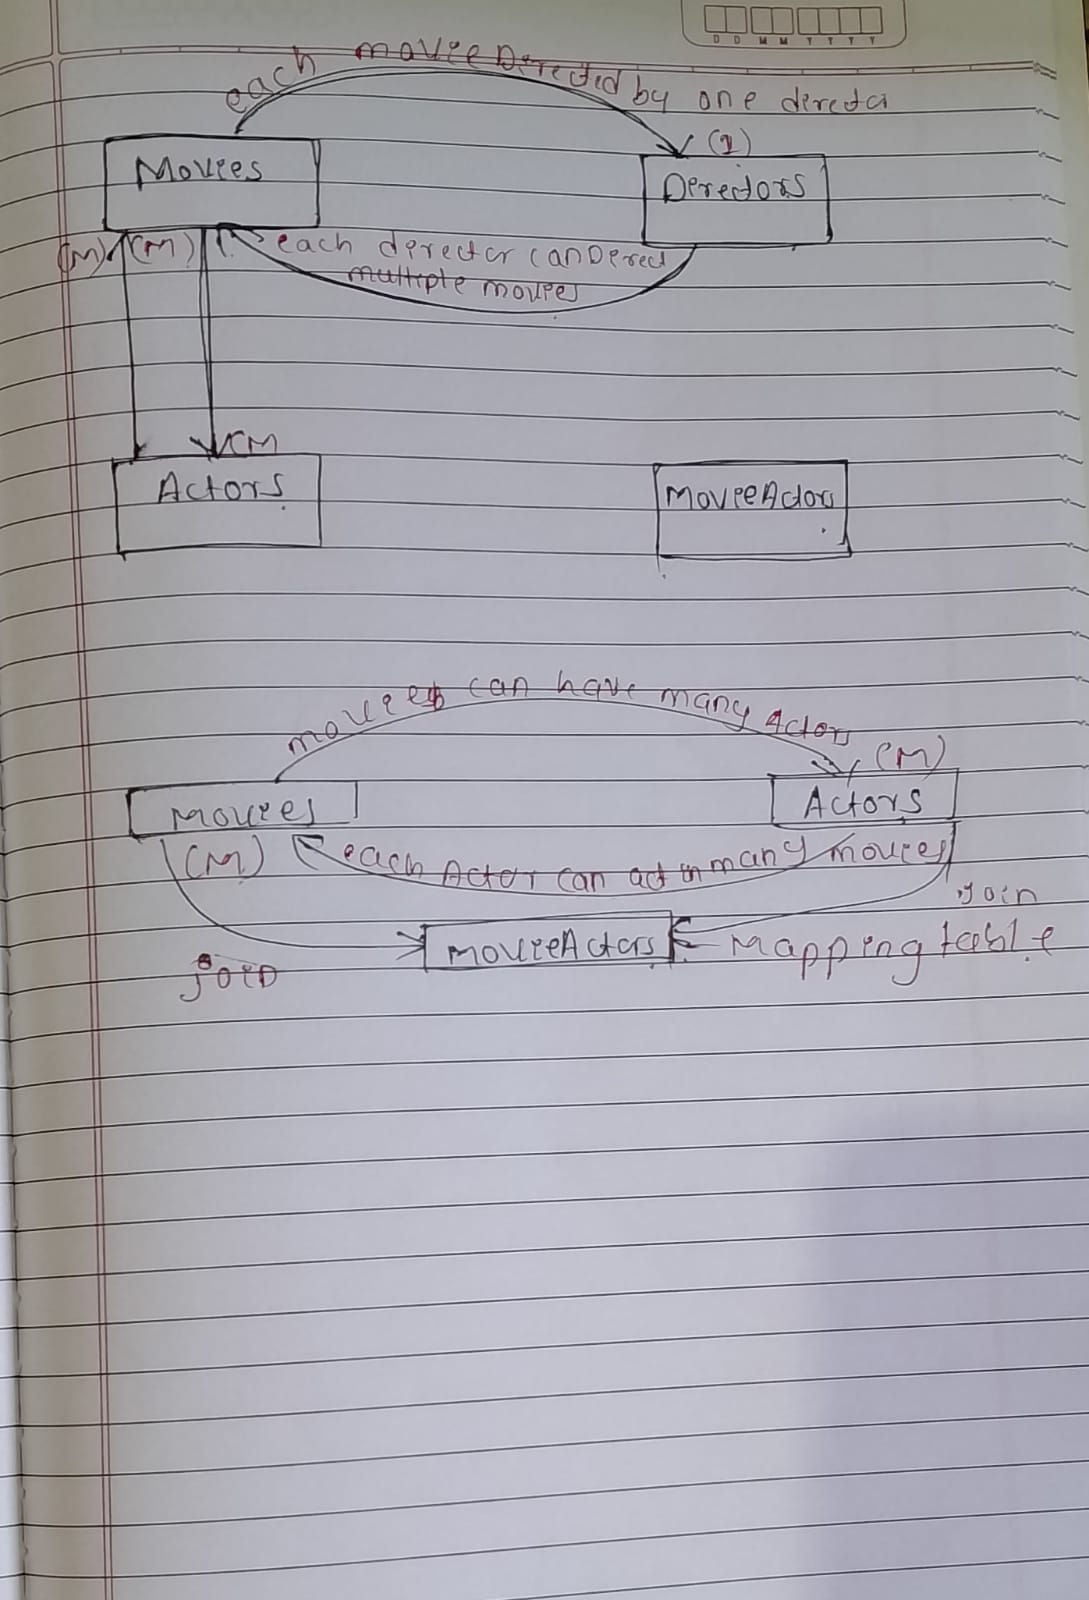 D D M M Y Y Y Y
each movie Derected by one derecta
(1)
Movies
Derectors
(M) (M) each derector can Derect
multiple movies
(M
Actors
MovieActors
movies can have many Actors
(M)
Movies
Actors
(M) each Actor can act in many movies
join
movieActors mapping table
join